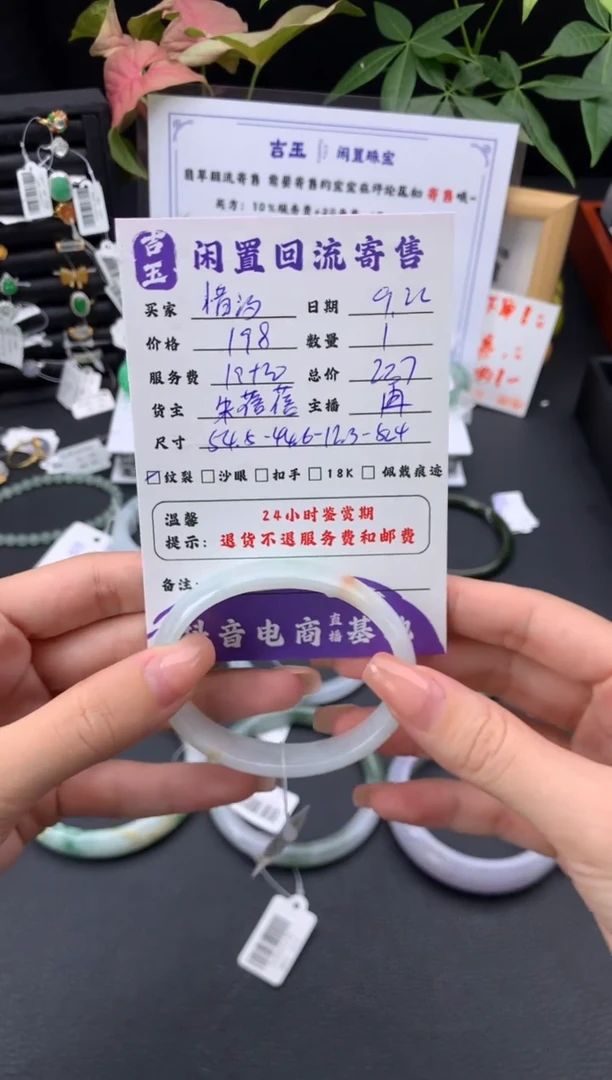 吉玉 闲置珠宝
翡翠回流寄售 需要寄售的宝宝在评论区扣 寄售哦~
吉玉 闲置回流寄售
买家 日期 9.22
价格 198 数量 1
服务费 19+10 总价 227
货主 朱蓓蓓 主播 再
尺寸 54.5-44.6-12.3-8.4
纹裂 沙眼 扣手 18K 佩戴痕迹
温馨 24小时鉴赏期
提示: 退货不退服务费和邮费
备注:
抖音电商直播基地